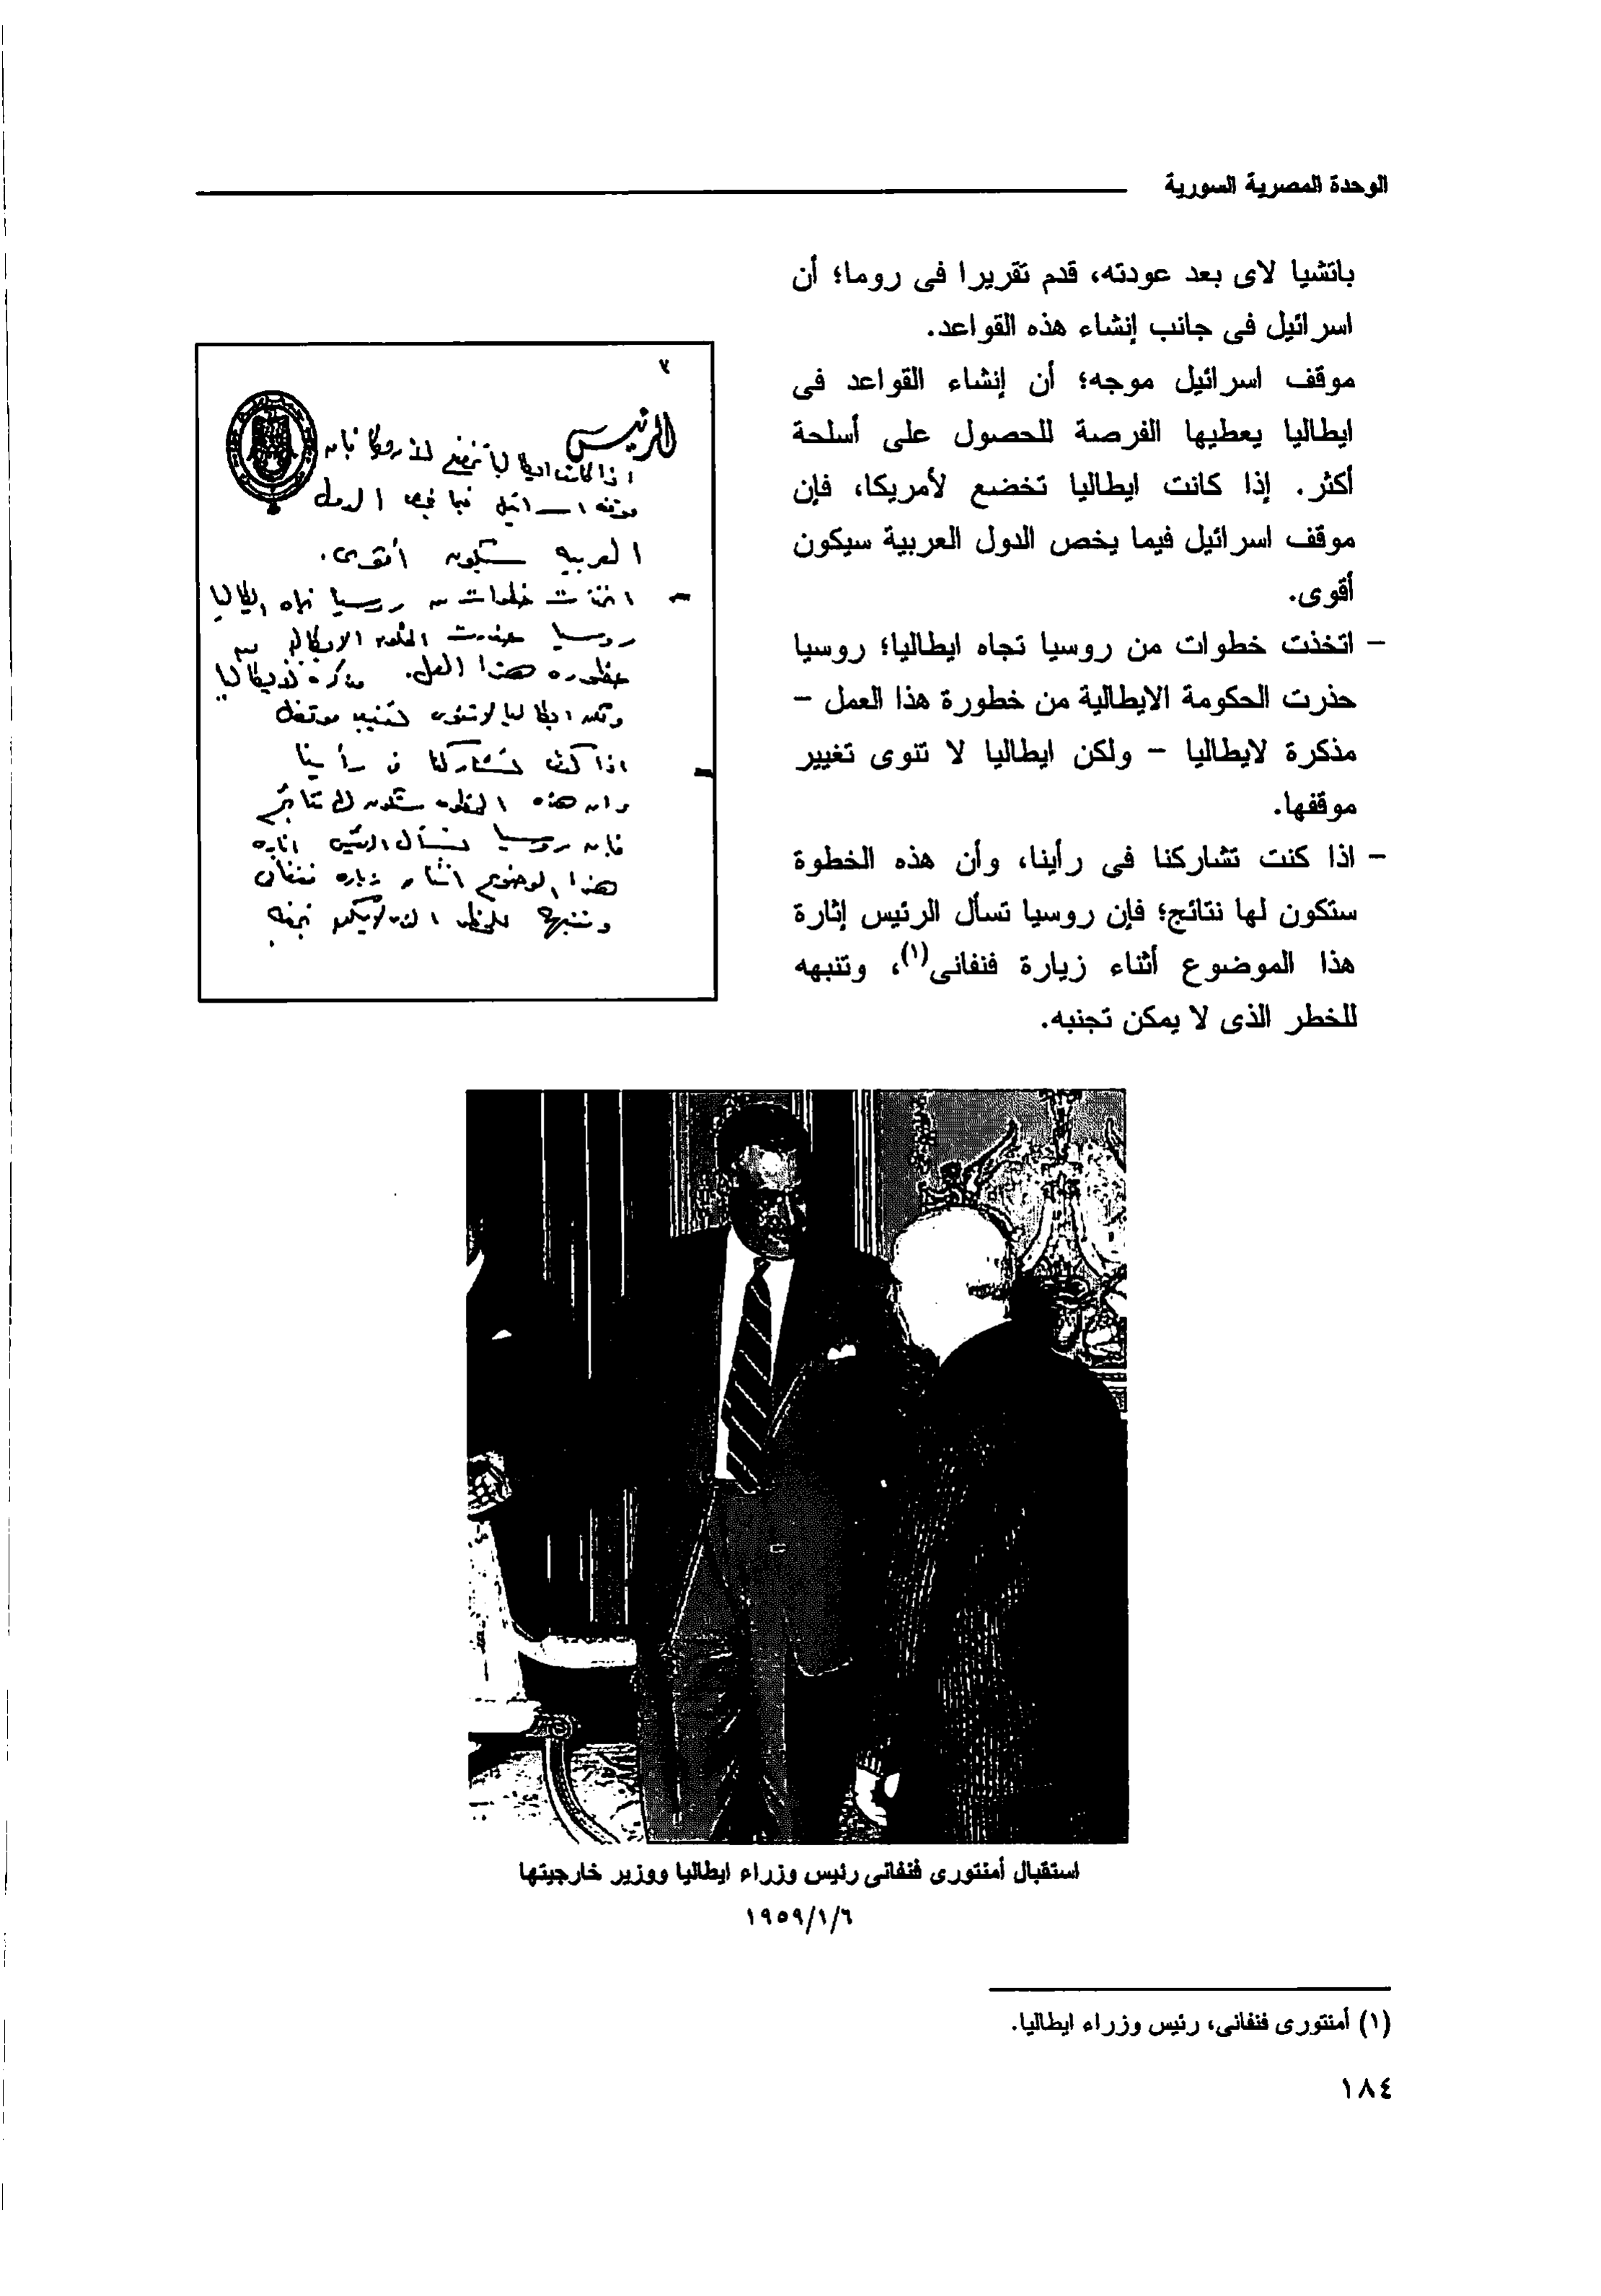 الوحدة المصرية السورية
باتشيا لاى بعد عودته، قدم تقريرا فى روما؛ أن
اسرائيل فى جانب إنشاء هذه القواعد.
موقف اسرائيل موجه؛ أن إنشاء القواعد فى
ايطاليا يعطيها الفرصة للحصول على أسلحة
أكثر. إذا كانت ايطاليا تخضع لأمريكا، فإن
موقف اسرائيل فيما يخص الدول العربية سيكون
أقوى.
- اتخذت خطوات من روسيا تجاه ايطاليا؛ روسيا
حذرت الحكومة الايطالية من خطورة هذا العمل -
مذكرة لايطاليا - ولكن ايطاليا لا تنوى تغيير
موقفها.
- اذا كنت تشاركنا فى رأينا، وأن هذه الخطوة
ستكون لها نتائج؛ فإن روسيا تسأل الرئيس إثارة
هذا الموضوع أثناء زيارة فنفانى(١)، وتنبهه
للخطر الذى لا يمكن تجنبه.
٧
الرئيس
اذا كانت ايطاليا تخضع لأمريكا فإن
موقف اسرائيل فيما يخص الدول
العربيه سيكون أقوى.
- اتخذت خطوات من روسيا تجاه ايطاليا
روسيا حذرت الحكومه الايطاليه من
خطوره هذا العمل. مذكره لايطاليا
ولكن ايطاليا لا تنوى تغيير موقفها
- اذا كنت تشاركنا فى رأينا
وان هذه الخطوه ستكون لها نتائج
فإن روسيا تسأل الرئيس اثاره
هذا الموضوع اثناء زياره فنفانى
وتنبهه للخطر الذى لا يمكن تجنبه
استقبال أمنتورى فنفانى رئيس وزراء ايطاليا ووزير خارجيتها
١٩٥٩/١/٦
(١) أمنتورى فنفانى، رئيس وزراء ايطاليا.
١٨٤